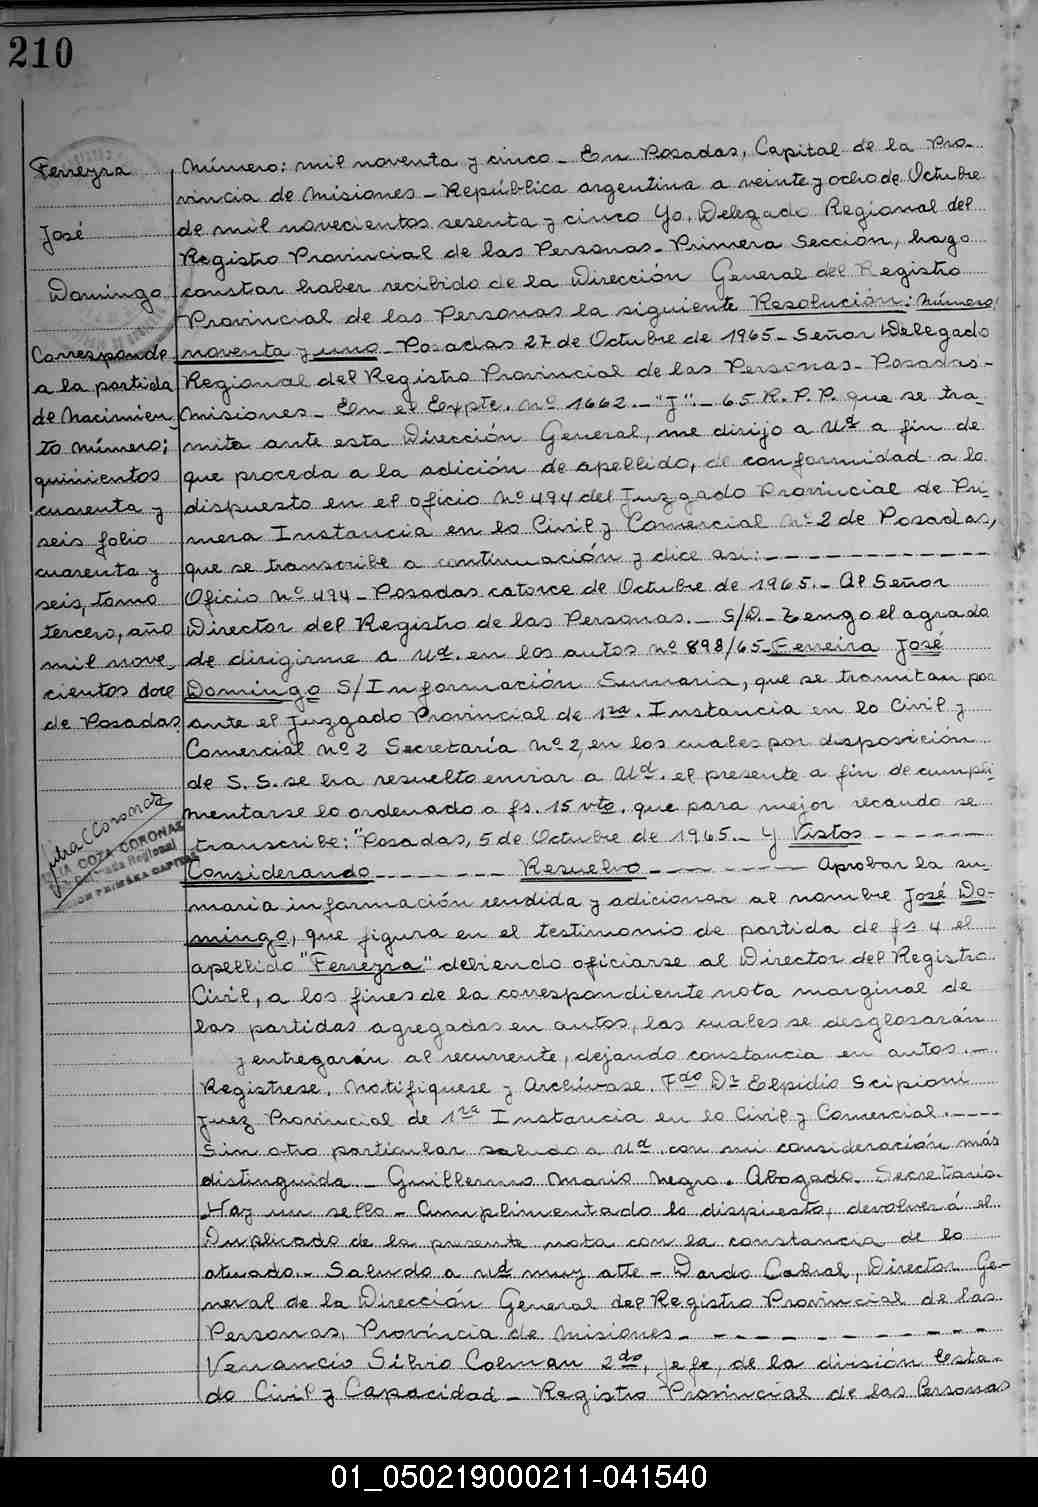 210
Ferreyra
José
Domingo
Corresponde
a la partida
de Nacimien-
to número;
quinientos
cuarenta y
seis folio
cuarenta y
seis, tomo
tercero, año
mil nove-
cientos doce
de Posadas
Número: mil noventa y cinco - En Posadas, Capital de la Pro-
vincia de Misiones - República Argentina a veinte y ocho de Octubre
de mil novecientos sesenta y cinco Yo, Delegado Regional del
Registro Provincial de las Personas - Primera Sección, hago
constar haber recibido de la Dirección General del Registro
Provincial de las Personas la siguiente Resolución: Número
noventa y uno - Posadas 27 de Octubre de 1965 - Señor Delegado
Regional del Registro Provincial de las Personas - Posadas -
Misiones - En el Expte. Nº 1662 - "J" - 65 R. P. P. que se tra-
mita ante esta Dirección General, me dirijo a Ud a fin de
que proceda a la adición de apellido, de conformidad a lo
dispuesto en el oficio Nº 494 del Juzgado Provincial de Pri-
mera Instancia en lo Civil y Comercial Nº 2 de Posadas,
que se transcribe a continuación y dice así:
Oficio Nº 494 - Posadas catorce de Octubre de 1965 - Al Señor
Director del Registro de las Personas - S/D. - Tengo el agrado
de dirigirme a Ud. en los autos Nº 898/65 - Ferreira José
Domingo S/Información Sumaria, que se tramitan por
ante el Juzgado Provincial de 1ra. Instancia en lo Civil y
Comercial Nº 2 Secretaría Nº 2, en los cuales por disposición
de S. S. se ha resuelto enviar a Ud. el presente a fin de cumpli-
mentarse lo ordenado a fs. 15 vto. que para mejor recaudo se
transcribe: "Posadas, 5 de Octubre de 1965 - Y Vistos
Considerando - Resuelvo - Aprobar la su-
maria información rendida y adicionar al nombre José Do-
mingo, que figura en el testimonio de partida de fs 4 el
apellido "Ferreyra" debiendo oficiarse al Director del Registro
Civil, a los fines de la correspondiente nota marginal de
las partidas agregadas en autos, las cuales se desglosarán
y entregarán al recurrente, dejando constancia en autos. -
Registrese, Notifiquese y Archívase. Fdo Dr Elpidio Scipioni
Juez Provincial de 1ra Instancia en lo Civil y Comercial. -
Sin otro particular saludo a Ud. con mi consideración más
distinguida - Guillermo Mario Negro. Abogado. Secretario.
Hay un sello - Cumplimentado lo dispuesto, devolverá el
Duplicado de la presente nota con la constancia de lo
atuado. - Saludo a Ud muy atte - Dardo Cabral, Director Ge-
neral de la Dirección General del Registro Provincial de las
Personas, Provincia de Misiones -
Venancio Silvio Colman 2do, jefe, de la división Esta-
do Civil y Capacidad - Registro Provincial de las Personas
COZA CORONAZ
Delegada Regional
PRIMERA CAPITAL
01_050219000211-041540